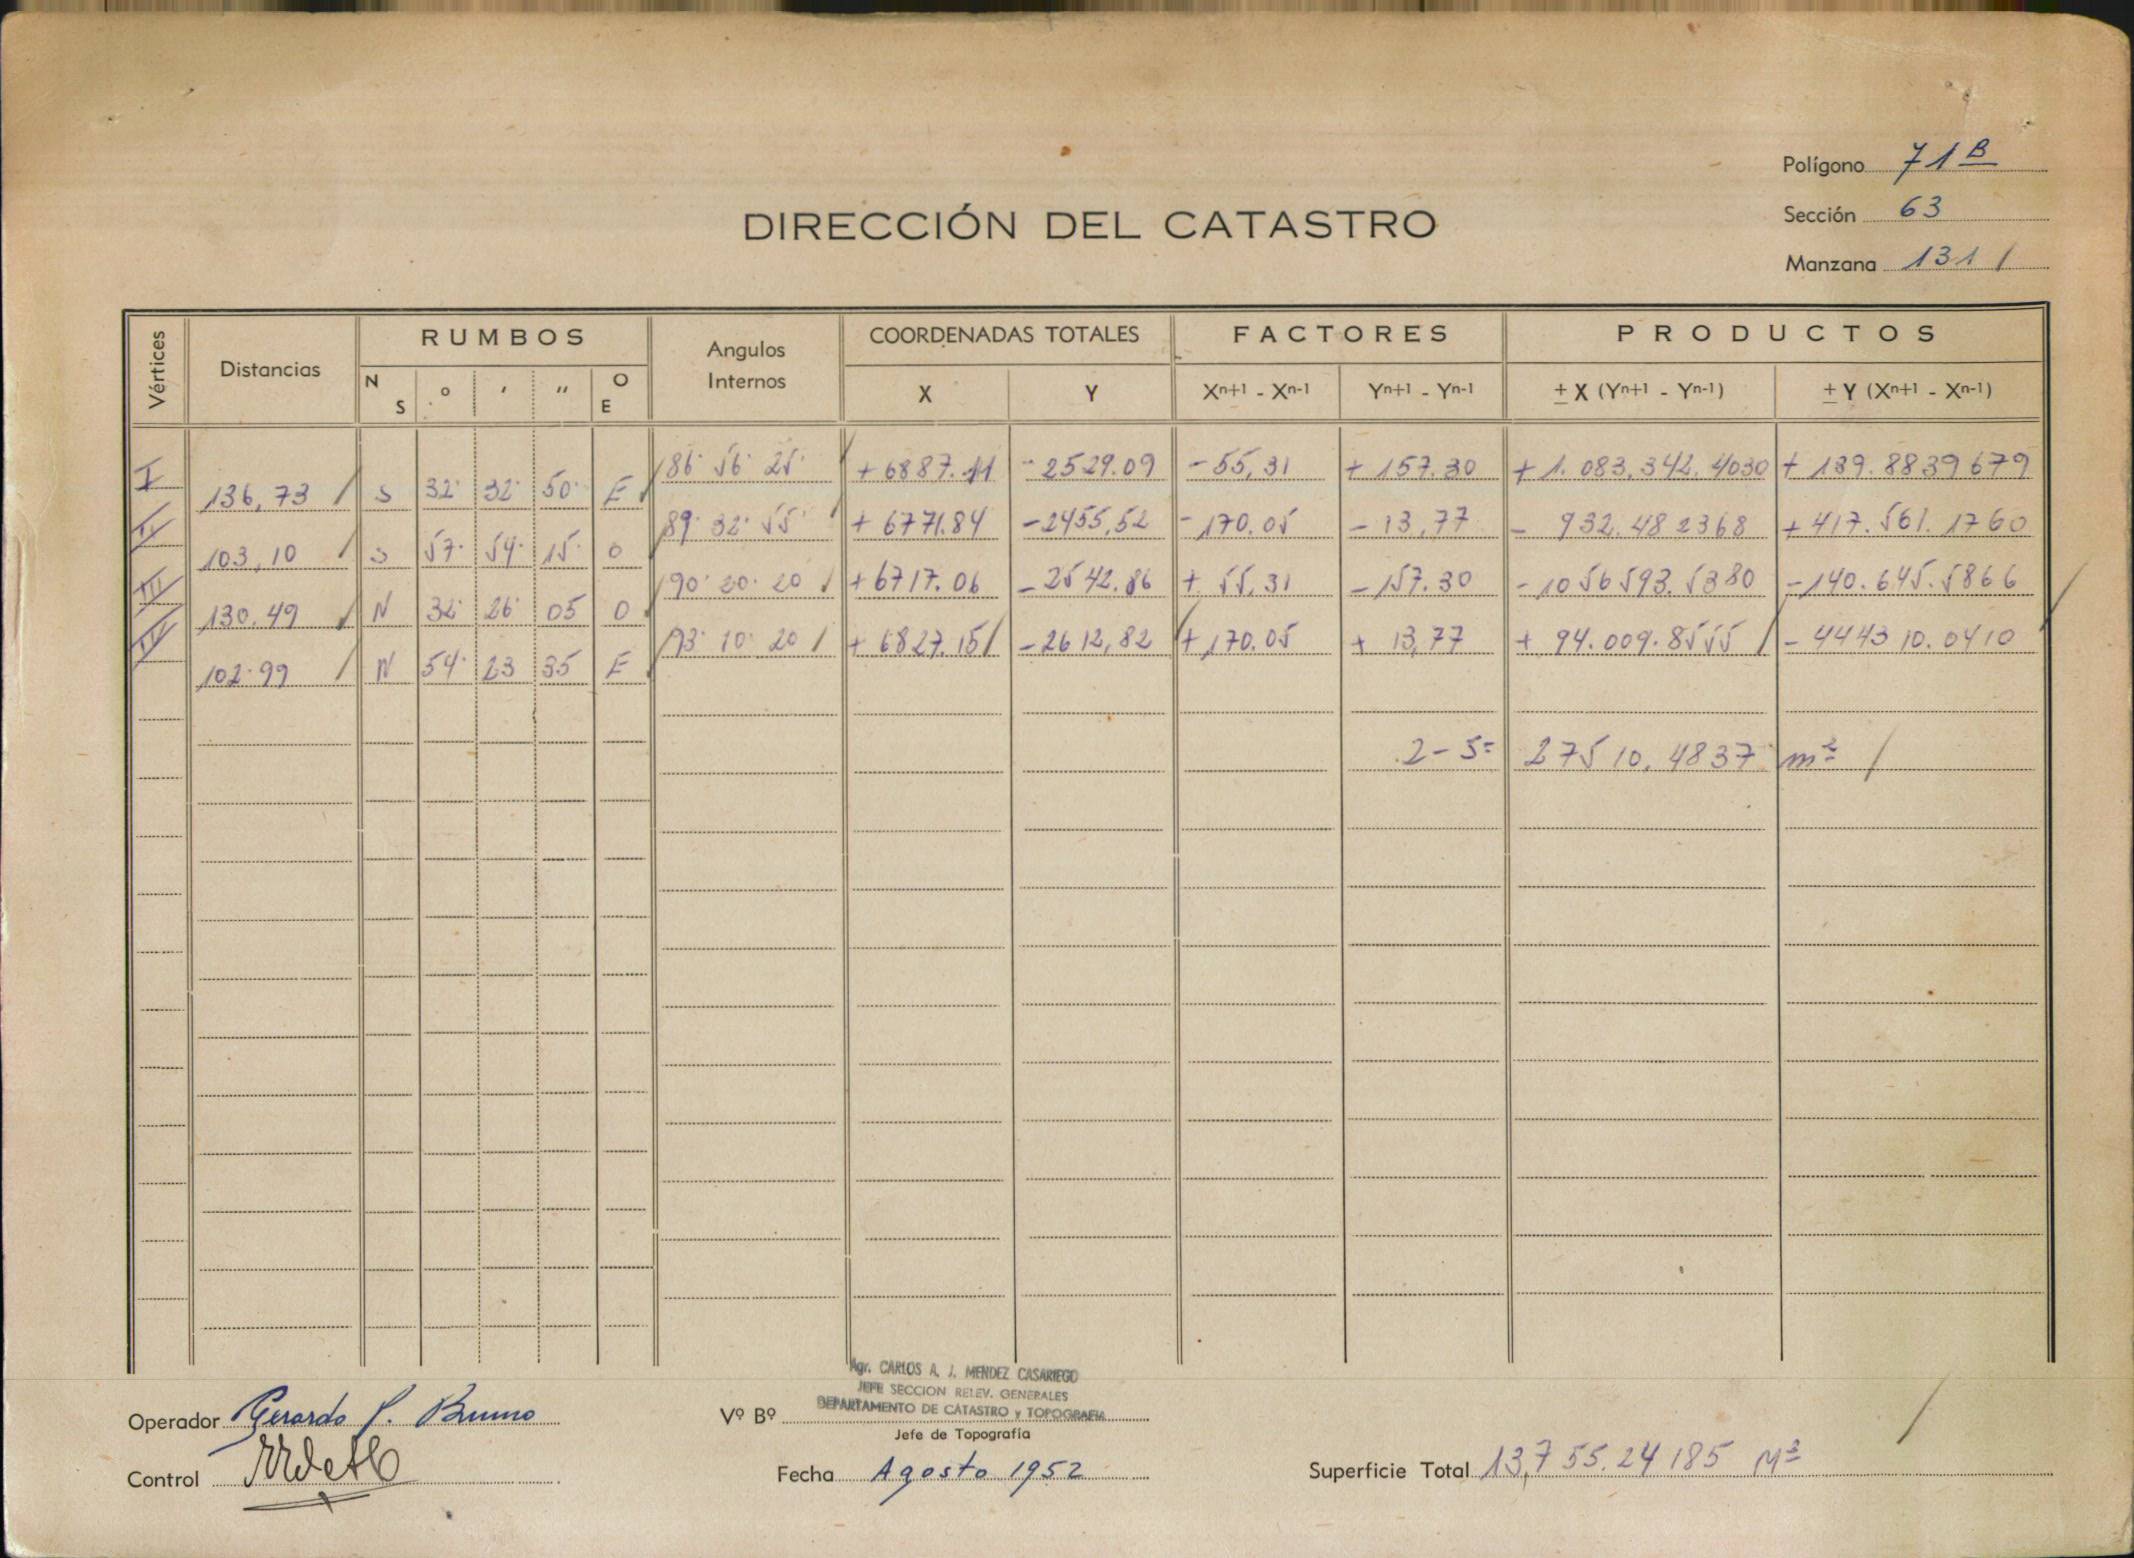 Polígono 71 B
DIRECCIÓN DEL CATASTRO
Sección 63
Manzana 131
Vértices Distancias RUMBOS Angulos Internos COORDENADAS TOTALES FACTORES PRODUCTOS
N S ° ′ ″ O E X Y Xn+1 - Xn-1 Yn+1 - Yn-1 ± X (Yn+1 - Yn-1) ± Y (Xn+1 - Xn-1)
I 86· 56· 25· +6887.11 -2529.09 -55,31 +157.30 +1.083.342.4030 +139.8839679
136,73 S 32· 32· 50· E
II 89· 32· 55· +6771.84 -2455,52 -170.05 -13,77 - 932.482368 +417.561.1760
103,10 S 57· 54· 15· O
III 90· 20· 20 +6717.06 -2542.86 + 55,31 -157.30 -1056593.5380 -140.645.5866
130.49 N 32· 26· 05 O
IV 93· 10· 20 + 6827.15 -2612,82 +170.05 + 13,77 + 94.009.8555 - 444310.0410
102.99 N 54· 23 35 E
2-S= 27510.4837 m²
Agr. CARLOS A. J. MENDEZ CASARIEGO
JEFE SECCION RELEV. GENERALES
DEPARTAMENTO DE CATASTRO y TOPOGRAFIA
Operador Gerardo P. Bruno Vº Bº
Jefe de Topografía
Control
Fecha Agosto 1952
Superficie Total 13,755.24185 M²